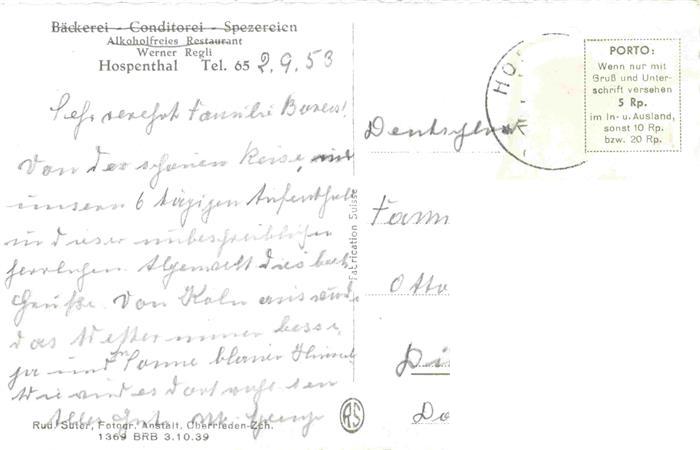 Bäckerei - Conditorei - Spezereien
Alkoholfreies Restaurant
Werner Regli
Hospenthal Tel. 65 2.9.53
Sehr verehrt Familie
Von der schönen Reise, und
unsern 6 tägigen Aufenthalt
in dieser unbeschreiblichen
herrlichen die
Grüße. Von Köln aus
das Wetter immer besse
ja und Sonne blauer Himmel
Wie wird es dort
Alles Gute
Rud. Suter, Fotogr. Anstalt, Oberrieden-Zch.
1369 BRB 3.10.39
Fabrication Suisse
RS
HO
PORTO:
Wenn nur mit
Gruß und Unter-
schrift versehen
5 Rp.
im In- u. Ausland,
sonst 10 Rp.
bzw. 20 Rp.
Deutschland
Fam
Otto